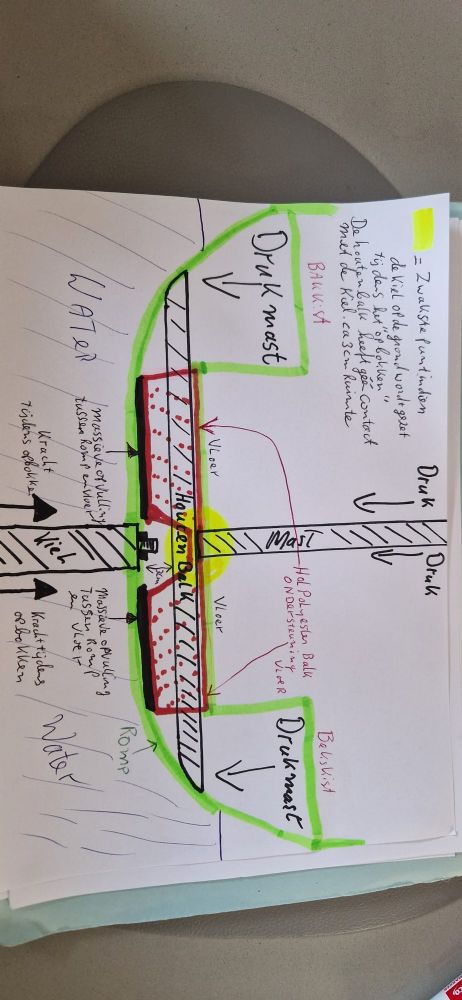 = Zwakste punt indien
de kiel op de grond wordt gezet
tijdens het "opbokken"
De houten balk heeft geen contact
met de kiel. ca 3cm Ruimte
Druk
Druk
Mast
BAKKist
Druk mast
Bakskist
Druk mast
Vloer
Vloer
Hol Polyester Balk
ONDERSTEUNING
VLOER
Houten Balk
3cm
WATER
Water
Massieve opvulling
tussen Romp en vloer
Massieve opvulling
Tussen Romp
en Vloer
ROMP
Kracht
tijdens opbokken
Kiel
Kracht tijdens
opbokken